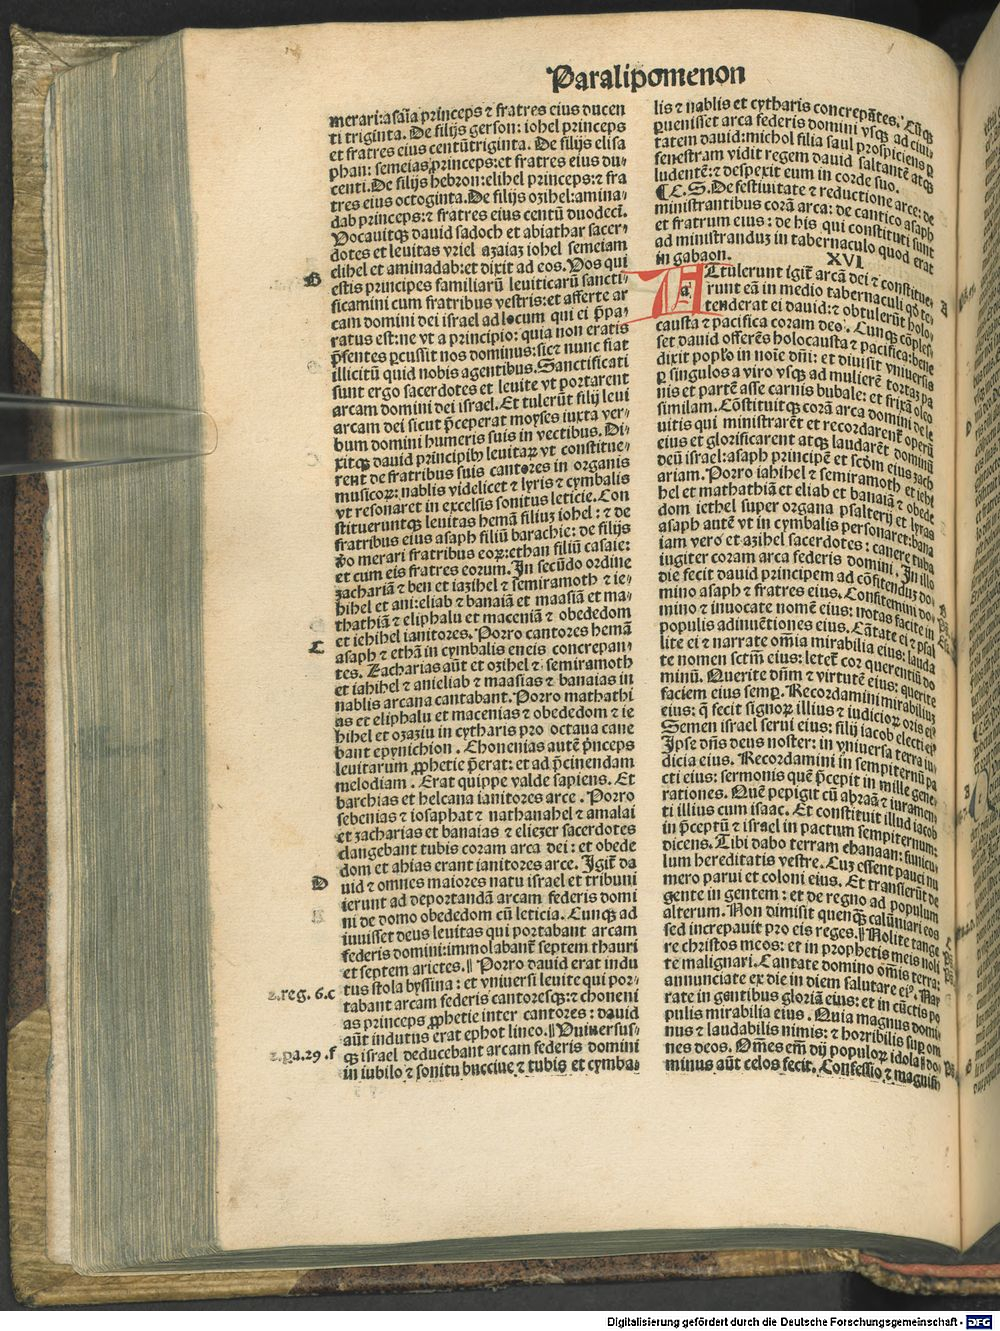 Paralipomenon
merari: asaīa princeps ⁊ fratres eius ducen
ti triginta. De filijs gerson: iohel princeps
et fratres eius centūtriginta. De filijs elisa
phan: semeias princeps: et fratres eius du-
centi. De filijs hebron: elihel princeps: ⁊ fra
tres eius octoginta. De filijs ozihel: amina-
dab princeps: ⁊ fratres eius centū duodecī.
Vocauitqꝫ dauid sadoch et abiathar sacer-
dotes et leuitas vriel azaiaꝫ iohel semeiam
elihel et aminadab: et dixit ad eos. Vos qui
B
estis principes familiarū leuiticarū sancti-
ficamini cum fratribus vestris: et afferte ar
cam domini dei israel ad locum qui ei p̄pa-
ratus est: ne vt a principio: quia non eratis
p̄sentes ꝑcussit nos dominus: sic ⁊ nunc fiat
illicitū quid nobis agentibus. Sanctificati
sunt ergo sacerdotes et leuite vt portarent
arcam domini dei israel. Et tulerūt filij leui
arcam dei sicut p̄ceperat moyses iuxta ver-
bum domini humeris suis in vectibus. Di-
xitqꝫ dauid principibꝰ leuitaꝝ vt constitue-
rent de fratribus suis cantores in organis
musicoꝝ: nablis videlicet ⁊ lyris ⁊ cymbalis
vt resonaret in excelsis sonitus leticie. Con
stitueruntqꝫ leuitas hemā filiuꝫ iohel: ⁊ de
fratribus eius asaph filiū barachie: de filijs
v̄o merari fratribus eoꝝ: ethan filiū casaie:
et cum eis fratres eorum. In secūdo ordine
zachariā ⁊ ben et iazihel ⁊ semiramoth ⁊ ie-
hihel et ani: eliab ⁊ banaiā et maasiā et ma-
thathiā ⁊ eliphalu et maceniā ⁊ obededom
et iehihel ianitores. Porro cantores hemā
C
asaph ⁊ ethā in cymbalis eneis concrepan-
tes. Zacharias aūt et ozihel ⁊ semiramoth
et iahihel ⁊ anieliab ⁊ maasias ⁊ banaias in
nablis arcana cantabant. Porro mathathi
as et eliphalu et macenias ⁊ obededom ⁊ ie
hihel et ozaziu in cytharis pro octaua cane
bant epynichion. Chonenias autē p̄nceps
leuitarum ꝓphetie p̄erat: et ad p̄cinendam
melodiam. Erat quippe valde sapiens. Et
barchias et helcana ianitores arce. Porro
sebenias ⁊ iosaphat ⁊ nathanahel ⁊ amalai
et zacharias et banaias ⁊ eliezer sacerdotes
clangebant tubis coram arca dei: et obede
dom et ahias erant ianitores arce. Igit̄ da
D
uid ⁊ omnes maiores natu israel et tribuni
ierunt ad deportandā arcam federis domi
ni de domo obededom cū leticia. Cunqꝫ ad
iuuisset deus leuitas qui portabant arcam
federis domini: immolabant̄ septem thauri
et septem arietes. Porro dauid erat indu
2. reg. 6. c
tus stola byssina: et vniuersi leuite qui por-
tabant arcam federis cantoresqꝫ: ⁊ choneni
as princeps ꝓphetie inter cantores: dauid
aūt indutus erat ephot lineo. Vniuersus-
2. pa. 29. f
qꝫ israel deducebant arcam federis domini
in iubilo ⁊ sonitu buccine ⁊ tubis et cymba-
lis ⁊ nablis et cytharis concrepātes. Cūqꝫ
ꝑuenisset arca federis domini vsqꝫ ad ciui-
tatem dauid: michol filia saul prospiciens ꝑ
fenestram vidit regem dauid saltantē atqꝫ
ludentē: ⁊ despexit eum in corde suo.
¶ C. S. De festiuitate ⁊ reductione arce: de
ministrantibus corā arca: de cantico asaph
et fratrum eius: de his qui constituti sunt
ad ministranduꝫ in tabernaculo quod erat
in gabaon. XVI
Attulerunt igit̄ arcā dei ⁊ constitue-
A
runt eā in medio tabernaculi qd̄ te-
tenderat ei dauid: ⁊ obtulerūt holo-
causta ⁊ pacifica coram deo. Cunqꝫ cōples-
set dauid offerēs holocausta ⁊ pacifica: bene
dixit poplo in noīe dn̄i: et diuisit vniuersis
ꝑ singulos a viro vsqꝫ ad mulierē tortaꝫ pa
nis et partē asse carnis bubale: et frixā oleo
similam. Cōstituitqꝫ corā arca domini de le
uitis qui ministrarēt et recordarent̄ operū
eius et glorificarent atqꝫ laudarēt dominū
deū israel: asaph principē et scd̄m eius zach
ariam. Porro iahihel ⁊ semiramoth et iehi
hel et mathathiā et eliab et banaiā ⁊ obede
dom iethel super organa psalterij et lyras
asaph autē vt in cymbalis personaret: bana
iam vero et azihel sacerdotes: canere tuba
iugiter coram arca federis domini. In illo
die fecit dauid principem ad cōfitenduꝫ do-
mino asaph ⁊ fratres eius. Confitemini do-
mino ⁊ inuocate nomē eius: notas facite in
populis adinuētiones eius. Cātate ei ⁊ psal
lite ei ⁊ narrate om̄ia mirabilia eius: lauda
te nomen sctm̄ eius: letet̄ cor querentiū do
minū. Querite dn̄m ⁊ virtutē eius: querite
faciem eius semꝑ. Recordamini mirabiliuꝫ
eius: q̄ fecit signoꝝ illius ⁊ iudicioꝝ oris eiꝰ
Semen israel serui eius: filij iacob electi eiꝰ
Ipse dn̄s deus noster: in vniuersa terra iu-
dicia eius. Recordamini in sempiternū pa
cti eius: sermonis quē p̄cepit in mille gene-
rationes. Quē pepigit cū abraā ⁊ iuramen
ti illius cum isaac. Et constituit illud iacob
in p̄ceptū ⁊ israel in pactum sempiternum:
dicens. Tibi dabo terram chanaan: funicu-
lum hereditatis vestre. Cuꝫ essent pauci nu
mero parui et coloni eius. Et transierūt de
gente in gentem: et de regno ad populum
alterum. Non dimisit quenqꝫ calūniari eos
sed increpauit pro eis reges. Nolite tange
re christos meos: et in prophetis meis noli
te malignari. Cantate domino om̄is terra:
annunciate ex die in diem salutare eiꝰ. Nar
rate in gentibus gloriā eius: et in cūctis po
pulis mirabilia eius. Quia magnus domi-
nus ⁊ laudabilis nimis: ⁊ horribilis suꝑ om
nes deos. Om̄es em̄ dij populoꝝ idola: do-
minus aūt celos fecit. Confessio ⁊ magnifi
Digitalisierung gefördert durch die Deutsche Forschungsgemeinschaft - DFG